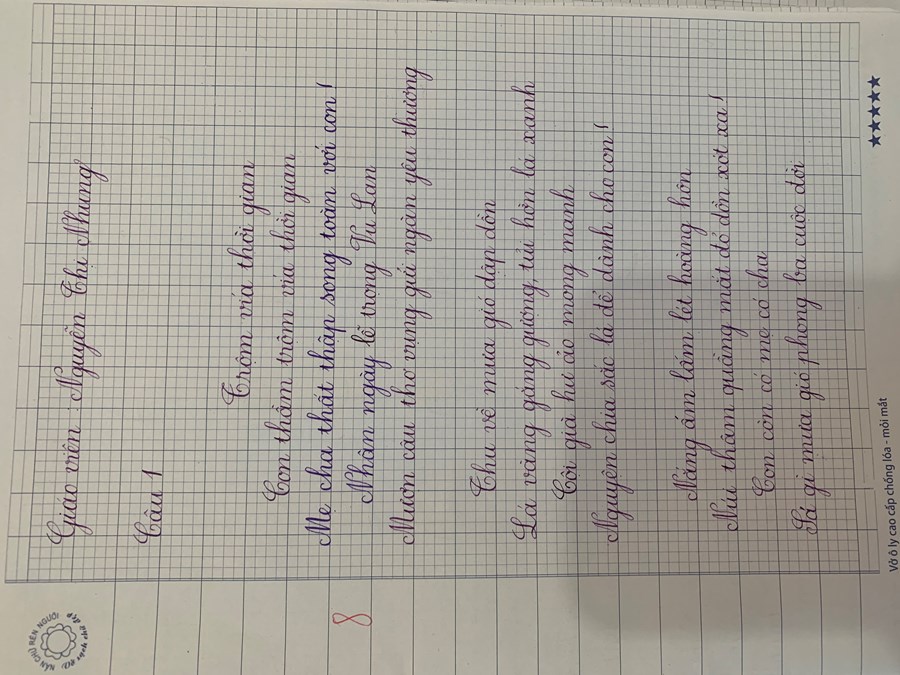 NẮN CHỮ RÈN NGƯỜI
Giáo viên: Nguyễn Thị Nhung
Câu 1
Trộm vía thời gian
Con thầm trộm vía thời gian
Mẹ cha thất thập song toàn với con!
Nhân ngày lễ trọng Vu Lan
Mượn câu thơ vụng gửi ngàn yêu thương
8
Thu về mưa gió dập dồn
Lá vàng gàng gượng tủi hờn lá xanh
Cội già hư ảo mong manh
Nguyện chia sắc lá để dành cho con!
Nắng ấm lấm lét hoàng hôn
Núi thâm quầng mắt đỏ dồn xót xa!
Con còn có mẹ có cha
Sá gì mưa gió phong ba cuộc đời
Vở ô ly cao cấp chống lóa - mỏi mắt